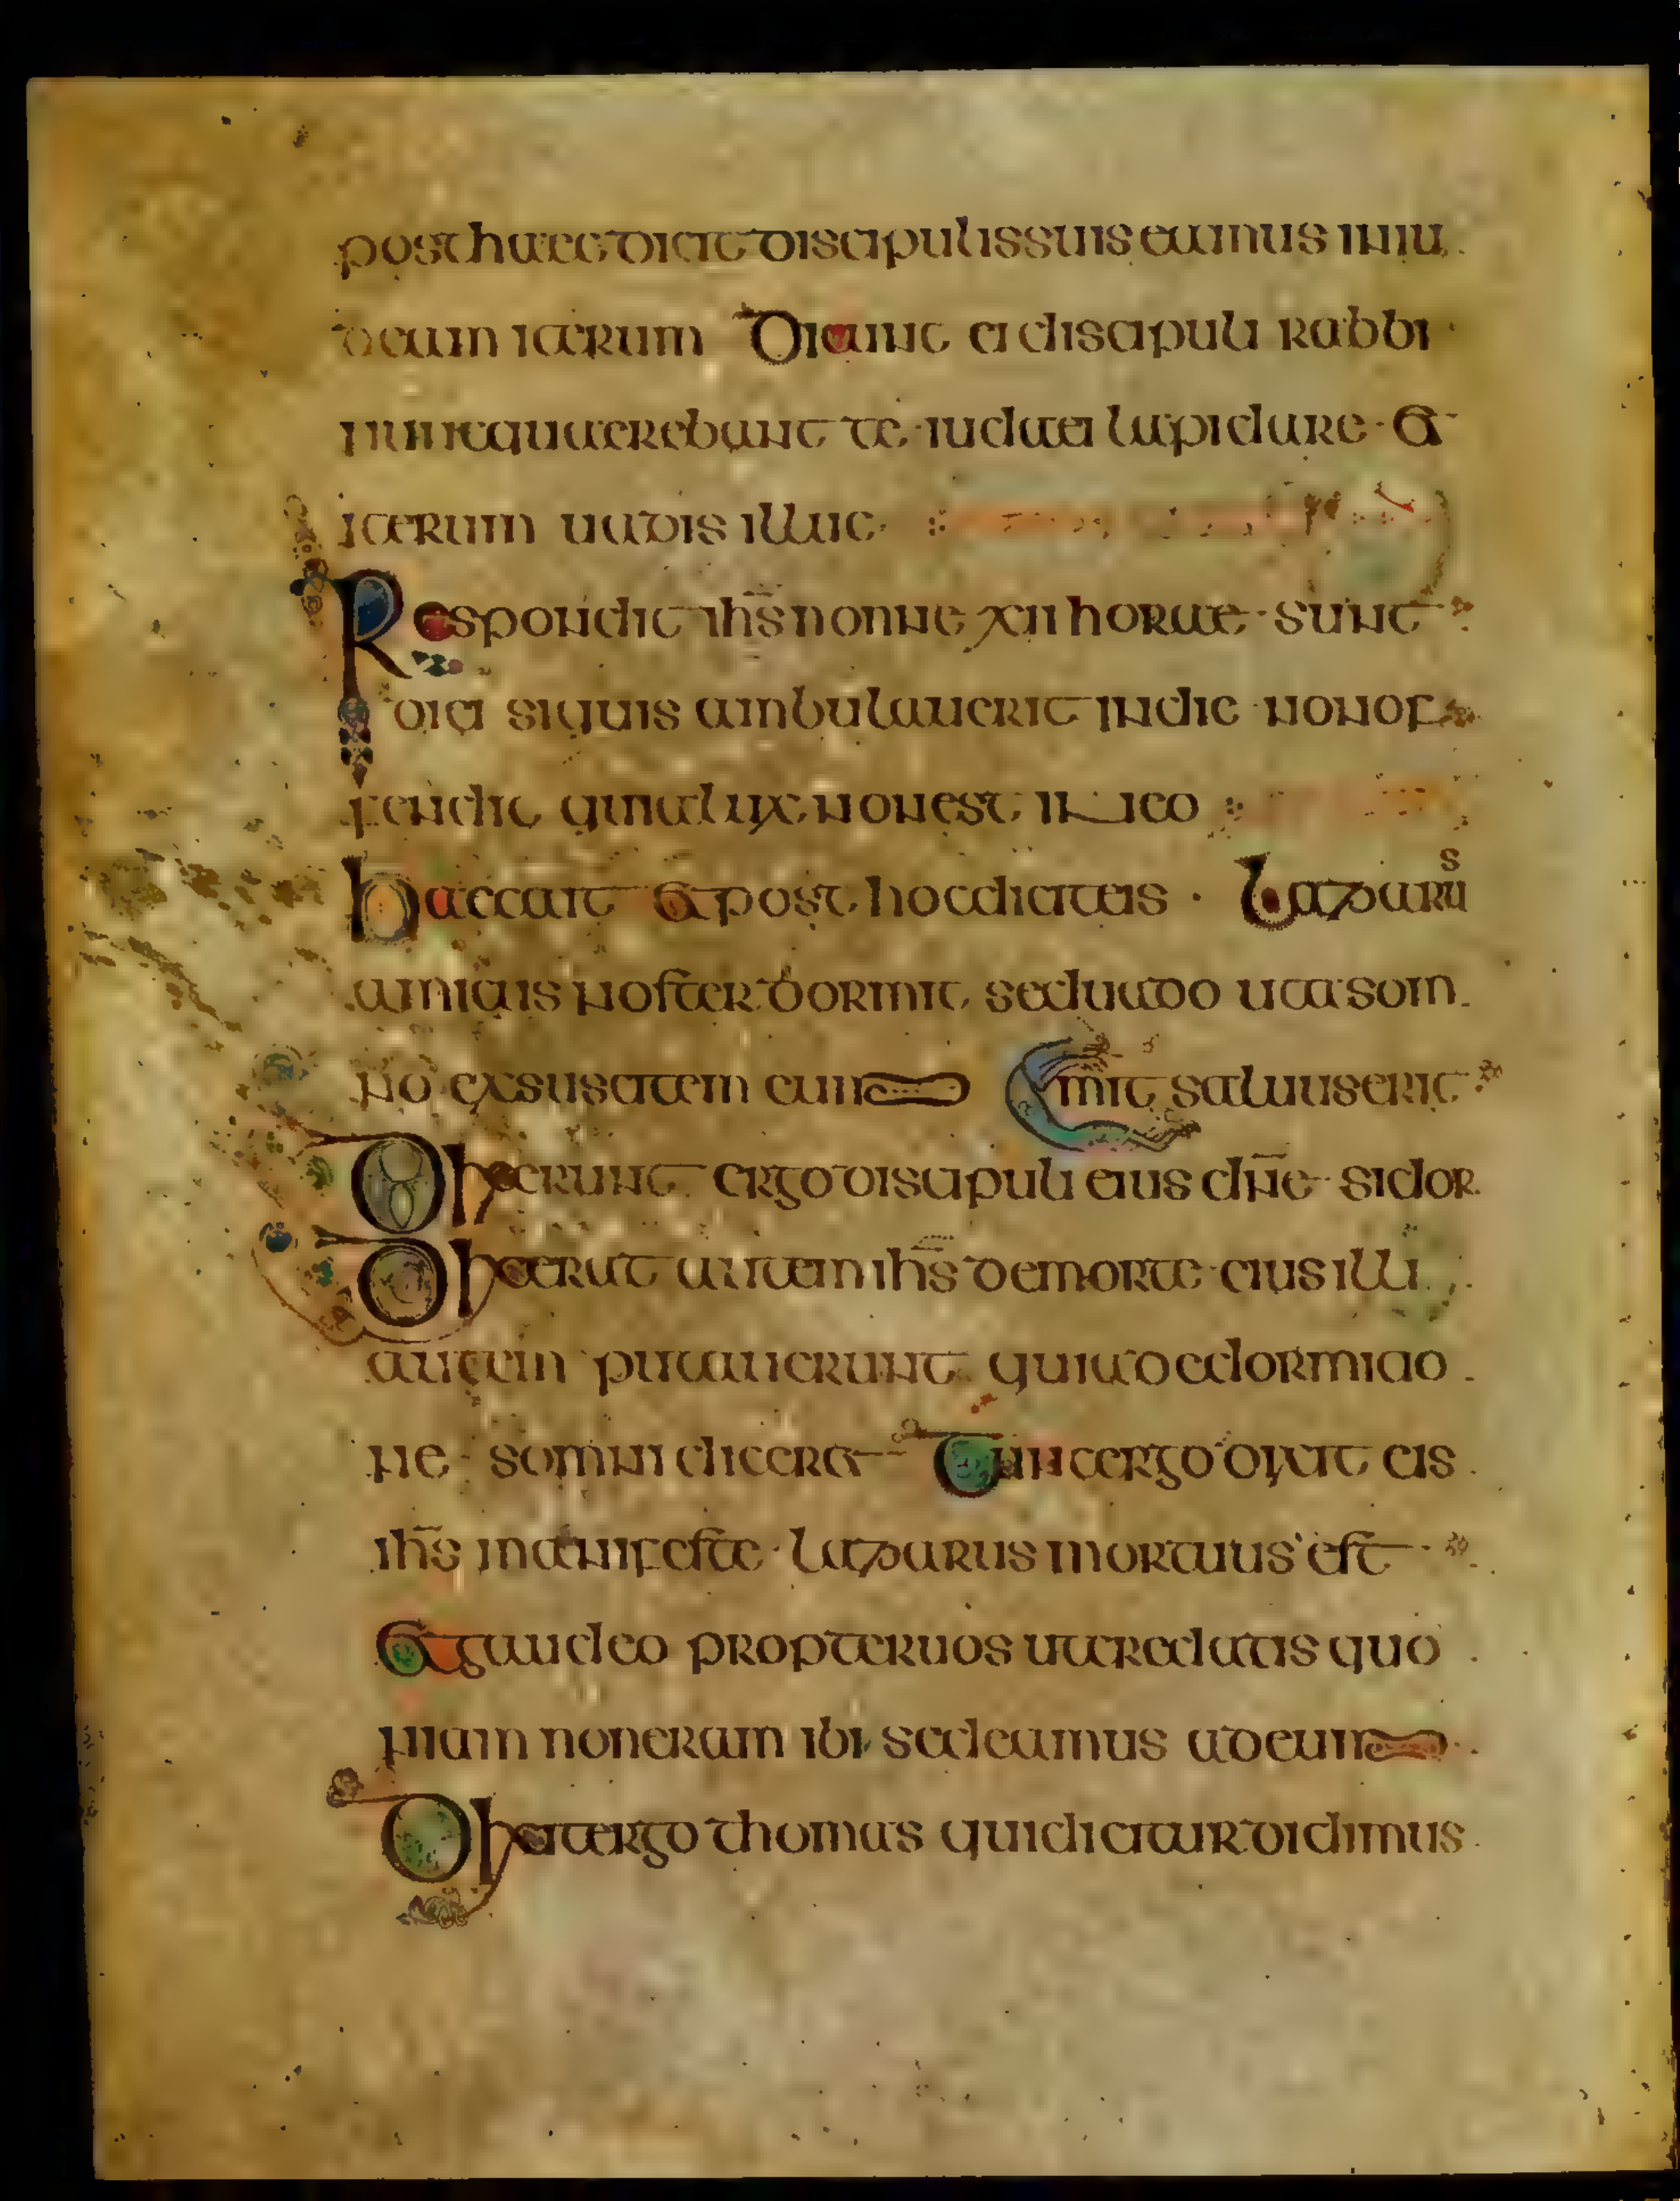 posthaec dicit discipulis suis eamus in iu
deam iterum Dicunt ei discipuli rabbi
nunc quaerebant te iudaei lapidare et
iterum uadis illuc
Respondit ihs nonne xii horae sunt
diei si quis ambulauerit in die non of
fendit quia lux non est in eo
Haec ait et post hoc dicit eis Lazarus
amicus noster dormit sed uado ut a som
no exsuscitem eum mit saluus erit
Dixerunt ergo discipuli eius dne si dor
Dixerat autem ihs de morte eius illi
autem putauerunt quia de dormitio
ne somni diceret Tunc ergo dixit eis
ihs manifeste lazarus mortuus est
Et gaudeo propter uos ut credatis quo
niam non eram ibi sed eamus ad eum
Dixit ergo thomas qui dicitur didimus